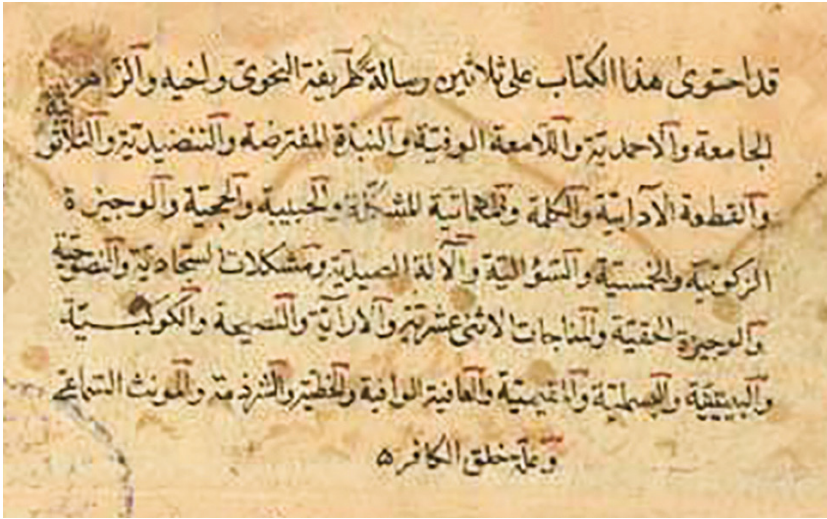 قد احتوى هذا الكتاب على ثلاثين رسالة طريفة النحوى واخيه والزاهرية
الجامعة والاحمدية واللامعة الوفية والنبذة المفترضة والتنضيدية والثلاثون
والقطعة الآدابية والكلمة المشكلة والحبيبية والحجية والوجيزة
الزكوتية والخمسية والسؤالية والآلة الصيدية ومشكلات
والوجيزة الحقية والمناجات الاثنى عشرية والارائية والنصيحة والكوكبية
والبسملية والمقيمية والعافية الوافية والخطية والشرذمة والمونث السماعى
وعلة خلق الكافر ۵